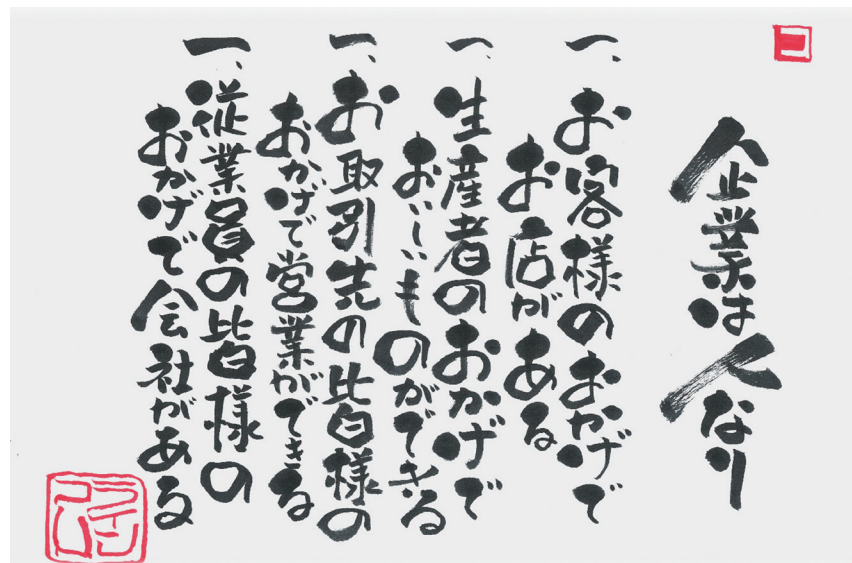 企業は人なり
一、お客様のおかげで
お店がある
一、生産者のおかげで
おいしいものができる
一、お取引先の皆様の
おかげで営業ができる
一、従業員の皆様の
おかげで会社がある